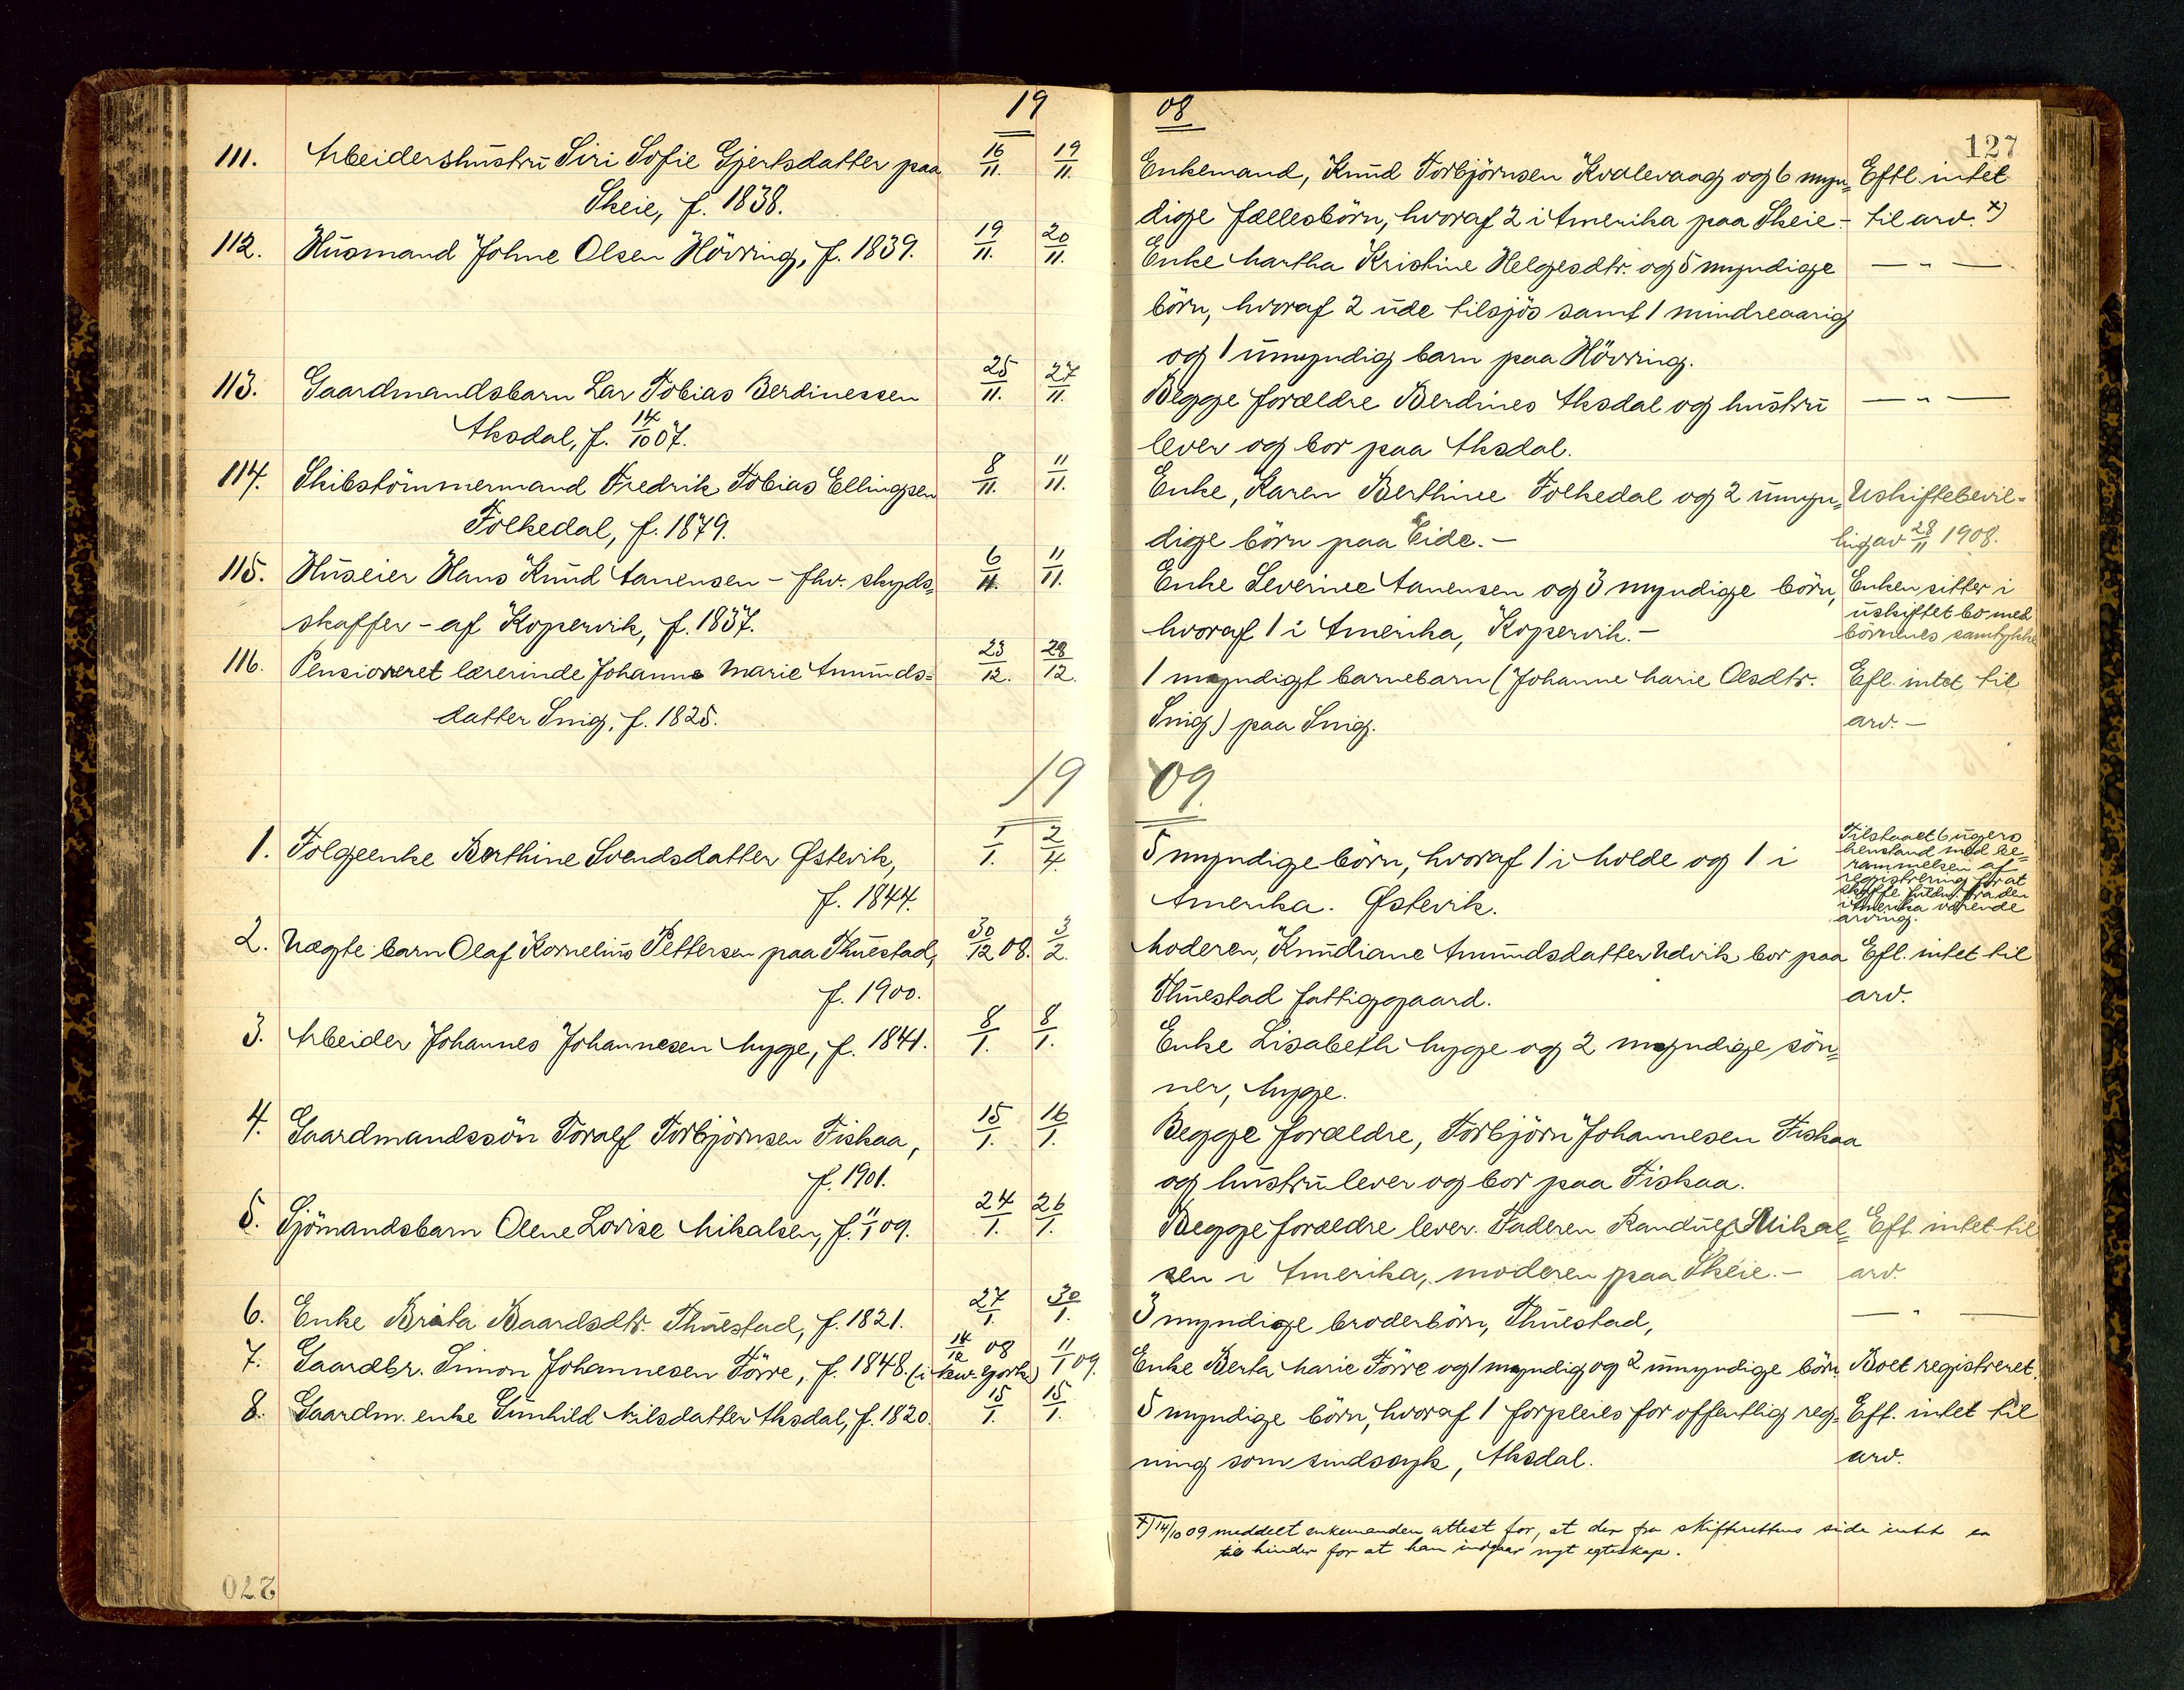 19 08
127
111. Arbeidershustru Siri Sofie Gjertsdatter paa 16/11. 19/11. Enkemand, Knud Torbjörnsen Kvalevaag og 6 myn= Eftl. intet
Skeie, f. 1838. dige fællesbörn, hvoraf 2 i Amerika paa Skeie.- til arv. x)
112. Husmand Johne Olsen Hövring, f. 1839. 19/11. 20/11. Enke Martha Kristine Helgesdtr. og 5 myndige — " —
börn, hvoraf 2 ude tilsjös samt 1 mindreaarig
og 1 umyndig barn paa Hövring.
113. Gaardmandsbarn Lar Tobias Berdinessen 25/11. 27/11. Begge forældre Berdines Aksdal og hustru — " —
Aksdal, f. 14/10 07. lever og bor paa Aksdal.
114. Skibstömmermand Fredrik Tobias Ellingsen 8/11. 11/11. Enke, Karen Berthine Folkedal og 2 umyn= Uskiftebevil-
Folkedal, f. 1879. dige börn paa Eide.- ling av 28/11 1908.
115. Huseier Hans Knud Aanensen - fhv. skyds= 6/11. 11/11. Enke Severine Aanensen og 3 myndige börn, Enken sitter i
skaffer - af Kopervik, f. 1837. hvoraf 1 i Amerika, Kopervik.- uskiftet bo med
börnenes samtykke
116. Pensioneret lærerinde Johanne Marie Amunds= 23/12. 28/12. 1 myndigt barnebarn (Johanne Marie Olsdtr. Efl. intet til
datter Snig, f. 1825. Snig) paa Snig. arv.-
19 09.
1. Folgeenke Berthine Svendsdatter Østevik, 1/1. 2/4. 5 myndige börn, hvoraf 1 i Molde og 1 i Tilstaaet 6 ugers
henstand med be=
rammelsen af
registrering for at
skaffe fuldm. fra den
i Amerika værende
arving.
f. 1844. Amerika. Østevik.
2. Nægte barn Olaf Kornelius Pettersen paa Thuestad, 30/12 08. 3/2. Moderen, Knudiane Amundsdatter Udvik bor paa Efl. intet til
f. 1900. Thuestad fattiggaard. arv.
3. Arbeider Johannes Johannesen Mygge, f. 1841. 8/1. 8/1. Enke Lisabeth Mygge og 2 myndige sön=
ner, Mygge.
4. Gaardmandssön Toralf Torbjörnsen Fiskaa, 15/1. 16/1. Begge forældre, Torbjörn Johannesen Fiskaa
f. 1901. og hustru lever og bor paa Fiskaa.
5. Sjömandsbarn Olene Lovise Mikalsen, f. 11/1 09. 24/1. 26/1. Begge forældre lever. Faderen Randulf Mikal= Eft. intet til
sen i Amerika, moderen paa Skeie.- arv.
6. Enke Brita Baardsdtr. Thuestad, f. 1821. 27/1. 30/1. 3 myndige broderbörn, Thuestad, — " —
7. Gaardbr. Simon Johannesen Förre, f. 1848. (i New-York) 14/12 08 11/1 09. Enke Berta Marie Förre og 1 myndig og 2 umyndige börn. Boet registreret.
8. Gaardm. enke Gunhild Nilsdatter Aksdal, f. 1820. 15/1. 15/1. 5 myndige börn, hvoraf 1 forpleies for offentlig reg= Eft. intet til
ning som sindssyk, Aksdal. arv.
x) 14/10 09 meddelt enkemanden attest for, at der fra skifterettens side intet er
til hinder for at han indgaar nyt egteskap.
270